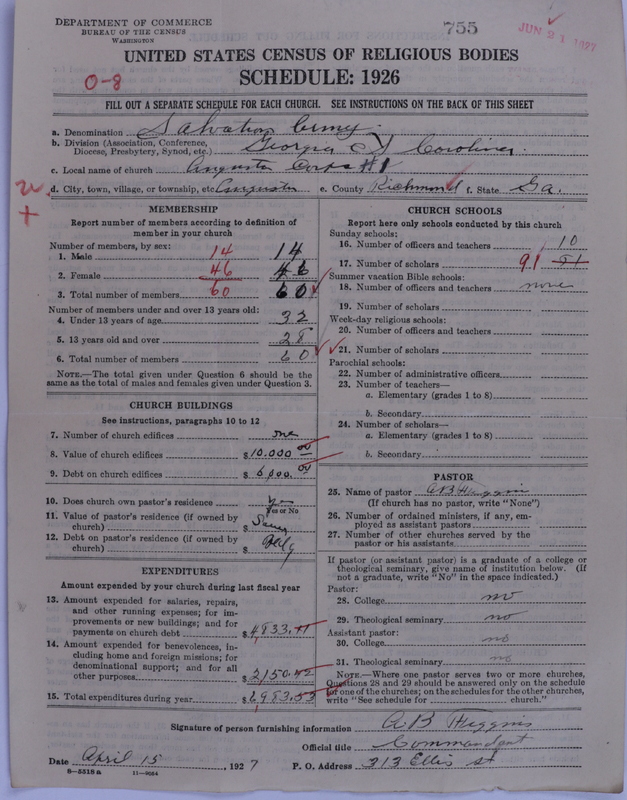 DEPARTMENT OF COMMERCE
BUREAU OF THE CENSUS
WASHINGTON
755
JUN 21 1927
UNITED STATES CENSUS OF RELIGIOUS BODIES
SCHEDULE: 1926
0-8
FILL OUT A SEPARATE SCHEDULE FOR EACH CHURCH. SEE INSTRUCTIONS ON THE BACK OF THIS SHEET
a. Denomination Salvation Army.
b. Division (Association, Conference, Diocese, Presbytery, Synod, etc.) Georgia & S Carolina.
c. Local name of church Augusta Corps #1
d. City, town, village, or township, etc. Augusta e. County Richmond f. State Ga.
MEMBERSHIP
Report number of members according to definition of
member in your church
Number of members, by sex:
1. Male 14 14
2. Female 46 46
3. Total number of members 60 60
Number of members under and over 13 years old:
4. Under 13 years of age 32
5. 13 years old and over 28
6. Total number of members 60
NOTE.—The total given under Question 6 should be the
same as the total of males and females given under Question 3.
CHURCH BUILDINGS
See instructions, paragraphs 10 to 12
7. Number of church edifices one
8. Value of church edifices $10,000 00
9. Debt on church edifices $6,000. 00
10. Does church own pastor's residence yes
Yes or No
11. Value of pastor's residence (if owned by
church) $ Same
12. Debt on pastor's residence (if owned by
church) $
EXPENDITURES
Amount expended by your church during last fiscal year
13. Amount expended for salaries, repairs,
and other running expenses; for im-
provements or new buildings; and for
payments on church debt $4,833.11
14. Amount expended for benevolences, in-
cluding home and foreign missions; for
denominational support; and for all
other purposes $2150.42
15. Total expenditures during year $6,983.53
CHURCH SCHOOLS
Report here only schools conducted by this church
Sunday schools:
16. Number of officers and teachers 10
17. Number of scholars 91 81
Summer vacation Bible schools:
18. Number of officers and teachers none
19. Number of scholars
Week-day religious schools:
20. Number of officers and teachers
21. Number of scholars
Parochial schools:
22. Number of administrative officers
23. Number of teachers—
a. Elementary (grades 1 to 8)
b. Secondary
24. Number of scholars—
a. Elementary (grades 1 to 8)
b. Secondary
PASTOR
25. Name of pastor A B Huggins
(If church has no pastor, write "None")
26. Number of ordained ministers, if any, em-
ployed as assistant pastors
27. Number of other churches served by the
pastor or his assistants
If pastor (or assistant pastor) is a graduate of a college or
theological seminary, give name of institution below. (If
not a graduate, write "No" in the space indicated.)
Pastor:
28. College no
29. Theological seminary no
Assistant pastor:
30. College no
31. Theological seminary no
NOTE.—Where one pastor serves two or more churches,
Questions 28 and 29 should be answered only on the schedule
for one of the churches; on the schedules for the other churches,
write "See schedule for church."
Signature of person furnishing information A B Huggins
Official title Commandant
Date April 15, 1927 P. O. Address 313 Ellis st
8—5318 a 11—9064